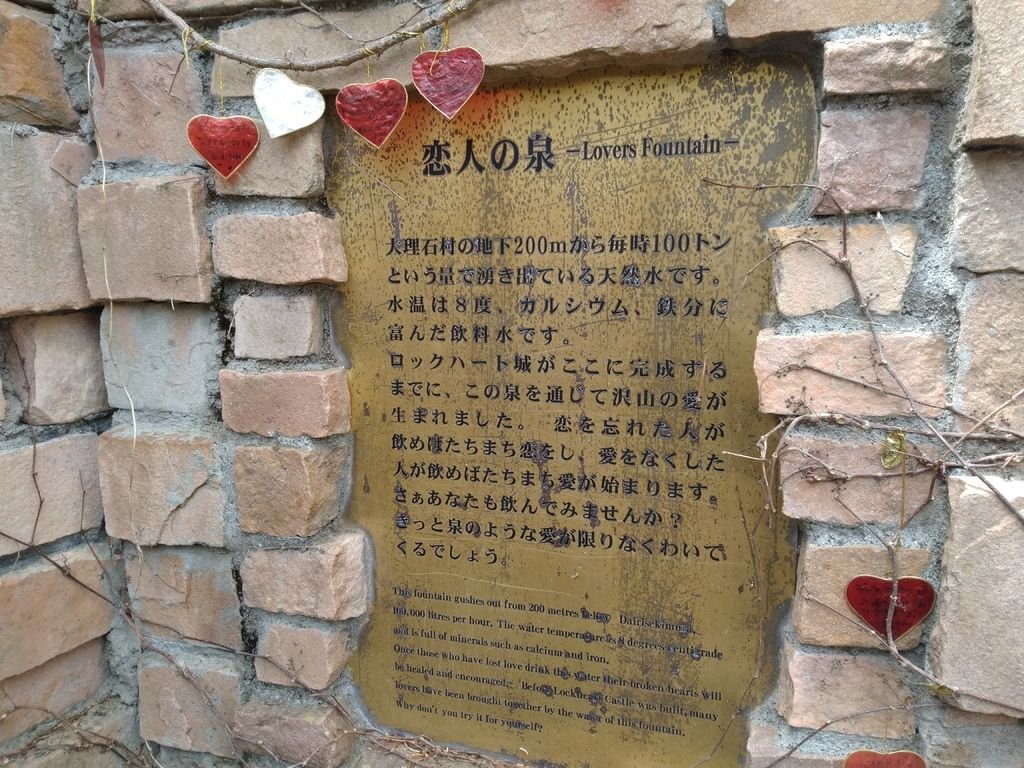 恋人の泉 –Lovers Fountain–
大理石村の地下200mから毎時100トン
という量で湧き出ている天然水です。
水温は8度、カルシウム、鉄分に
富んだ飲料水です。
ロックハート城がここに完成する
までに、この泉を通じて沢山の愛が
生まれました。 恋を忘れた人が
飲めばたちまち恋をし、愛をなくした
人が飲めばたちまち愛が始まります。
さぁあなたも飲んでみませんか?
きっと泉のような愛が限りなくわいて
くるでしょう。
This fountain gushes out from 200 metres below Dairisekimura,
100,000 litres per hour. The water temperature is 8 degrees centigrade
and is full of minerals such as calcium and iron.
Once those who have lost love drink this water their broken hearts will
be healed and encouraged. Before Lockheart Castle was built, many
lovers have been brought together by the water of this fountain.
Why don't you try it for yourself?